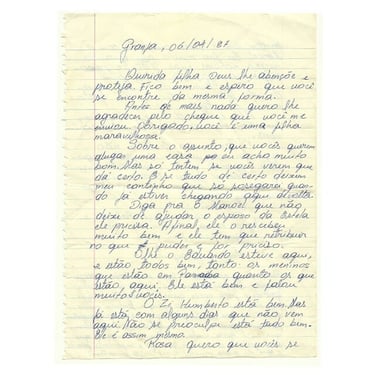 Granja, 06/04/87
Querida filha Deus lhe abençõe e
proteja. Fico bem e espero que você
se encontre da mesma forma.
Antes de mais nada quero lhe
agradecer pelo cheque que você me
enviou. Obrigado, você é uma filha
maravilhosa.
Sobre o assunto, que vocês querem
alugar uma casa eu acho muito
bom. Mas só tentem se vocês verem que
dá certo. E se tudo de certo deixem
meu cantinho que só sossegará quan-
do já estiver chegando aqui de volta.
Diga pra o Manoel que não
deixe de ajudar o esposo da
ele precisa. Afinal, ele o recebeu
muito bem e ele tem que retribuir
no que puder e for preciso.
Olhe o Eduardo esteve aqui,
e estão todos bem, tanto os meninos
que estão em quanto os que
estão, aqui. Ele está bem e falou
muito vocês.
O Zé, Humberto está bem. Mas
já está com alguns dias que não vem
aqui. Não se preocupe está tudo bem.
Ele é assim mesmo.
Rosa quero que vocês se